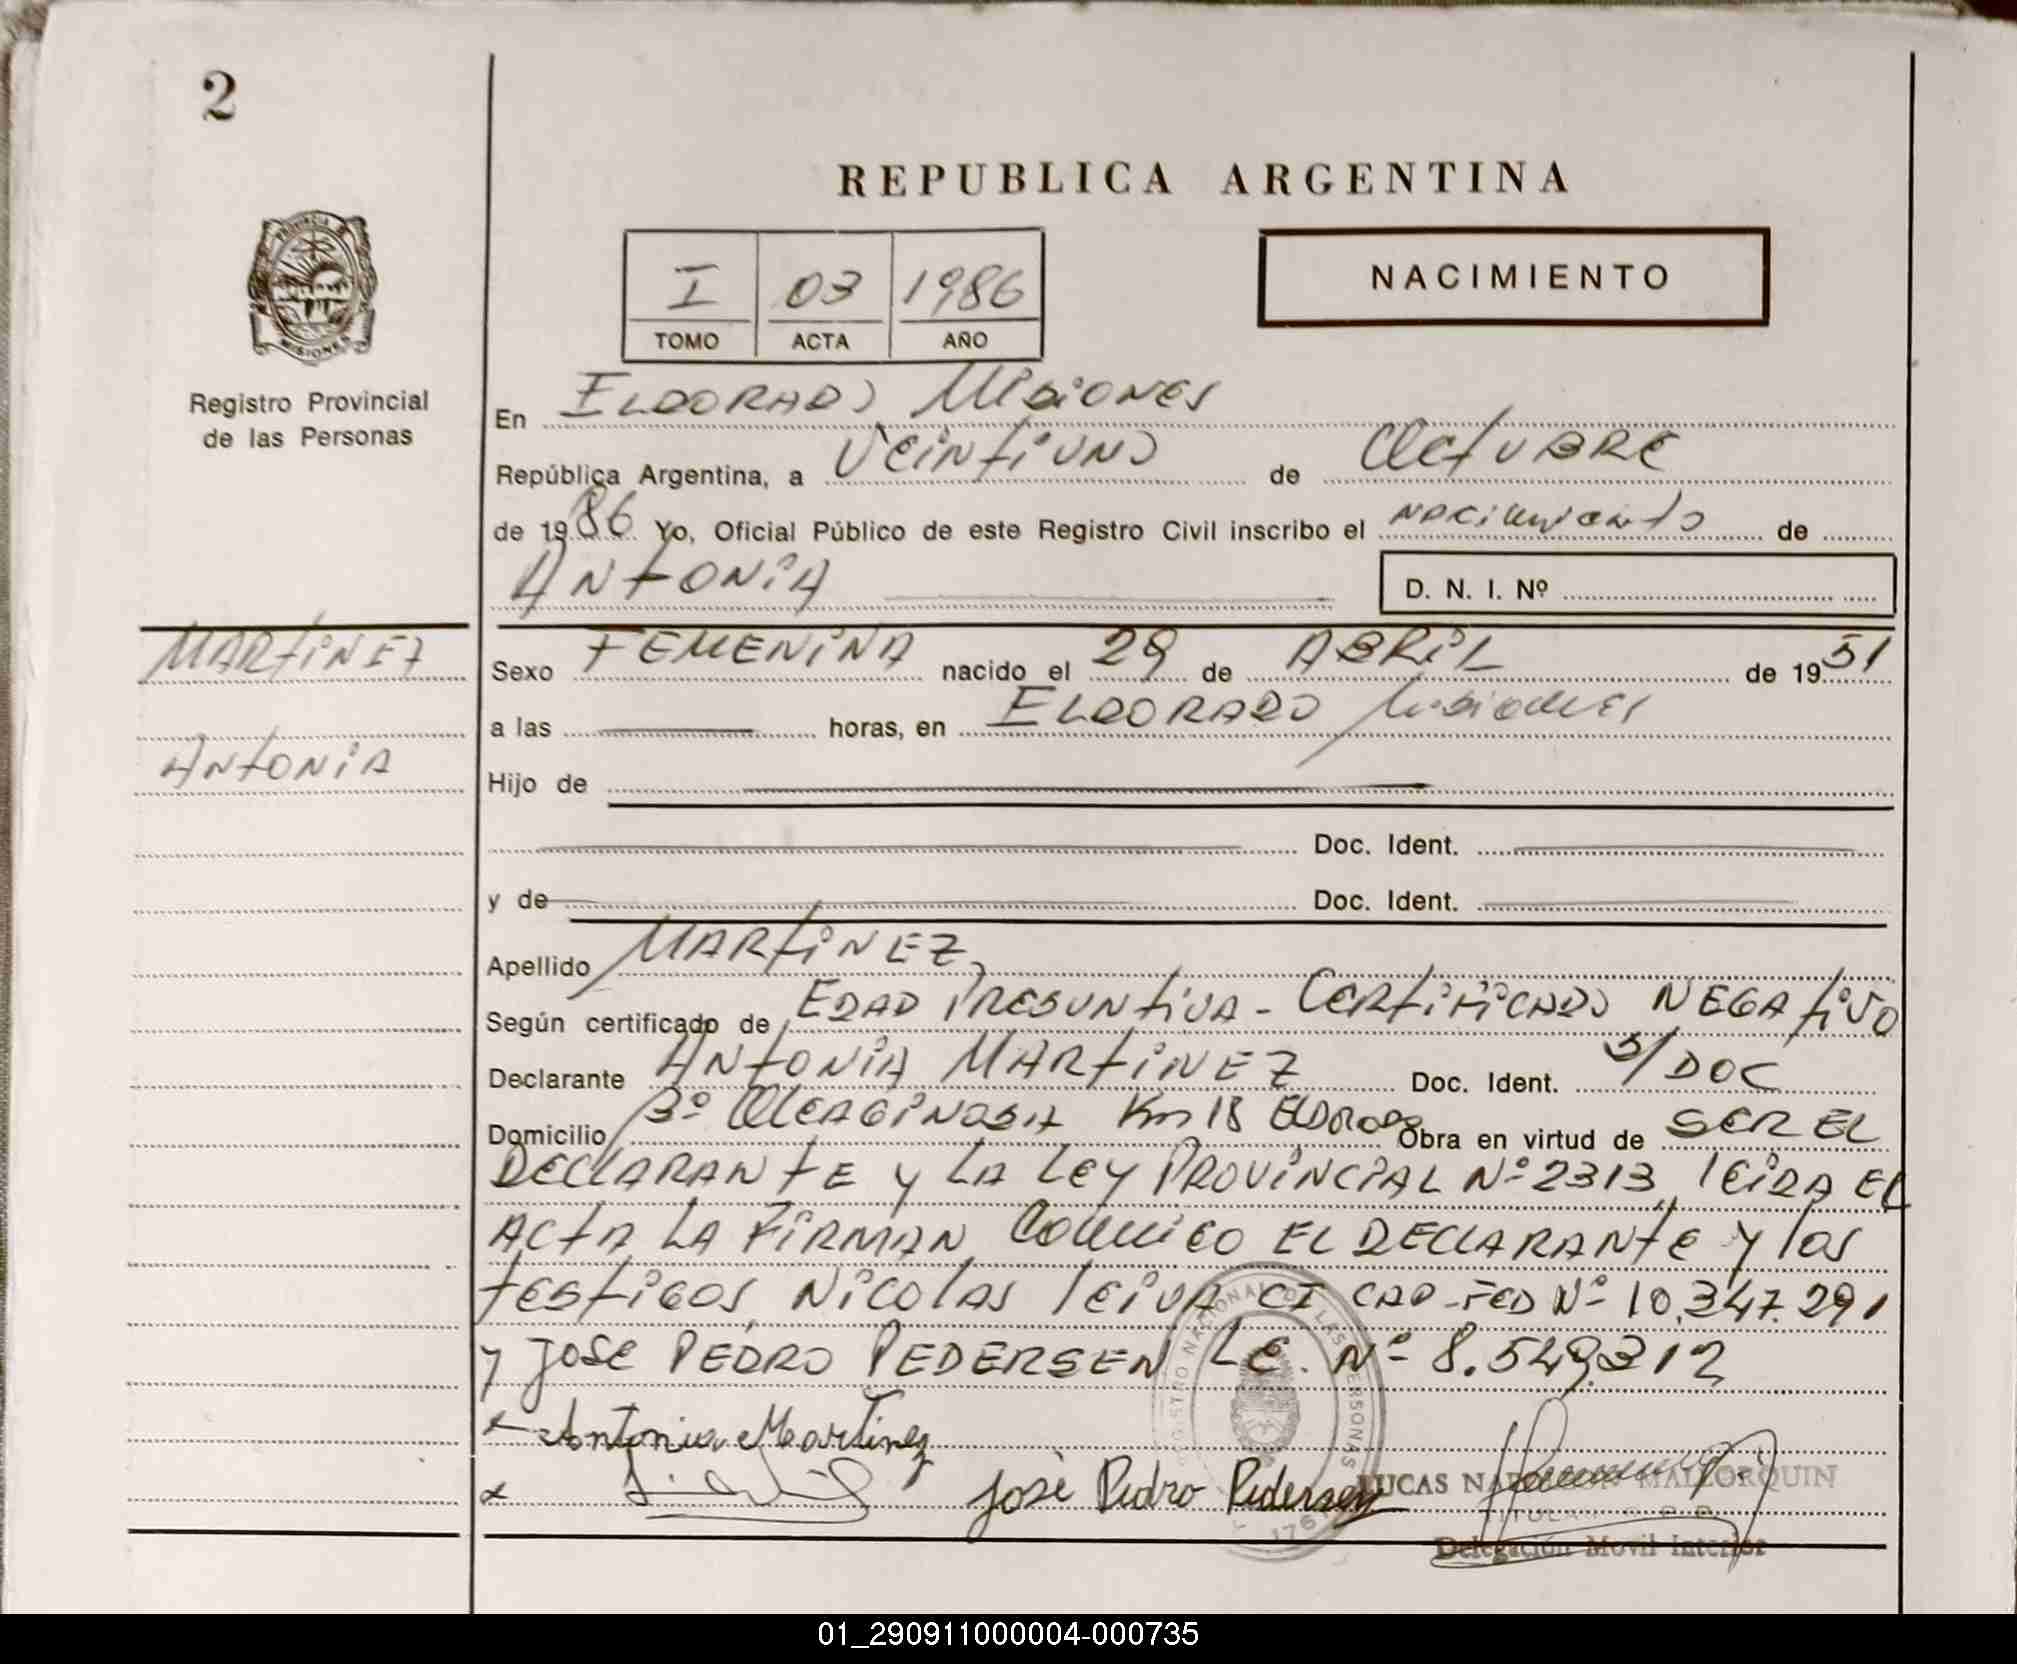 2
REPUBLICA ARGENTINA
PROVINCIA DE
MISIONES
I 03 1986
TOMO ACTA AÑO
NACIMIENTO
Registro Provincial
de las Personas
En ELDORADO MISIONES
República Argentina, a VEINTIUNO de OCTUBRE
de 1986 Yo, Oficial Público de este Registro Civil inscribo el nacimiento de
ANTONIA
D. N. I. Nº
MARTINEZ
ANTONIA
Sexo FEMENINA nacido el 29 de ABRIL de 1951
a las horas, en ELDORADO Misiones
Hijo de
Doc. Ident.
y de Doc. Ident.
Apellido MARTINEZ
Según certificado de EDAD PRESUNTIVA - CERTIFICADO NEGATIVO
Declarante ANTONIA MARTINEZ Doc. Ident. S/DOC
Domicilio Bº OLEAGINOSA Km 18 ELDORADO Obra en virtud de SER EL
DECLARANTE y LA LEY PROVINCIAL Nº 2313, lEIDA EL
ACTA LA FIRMAN CONMIGO EL DECLARANTE y los
tEStiGOS NICOLAS lEIVA CI CAP-FED Nº 10.347.291
y JOSE PEDRO PEDERSEN LE. Nº 8.549.312
x Antonia Martinez
x José Pedro Pedersen
LUCAS NAPOLEON MALLORQUIN
TITULAR
Delegación Movil Interior
01_290911000004-000735